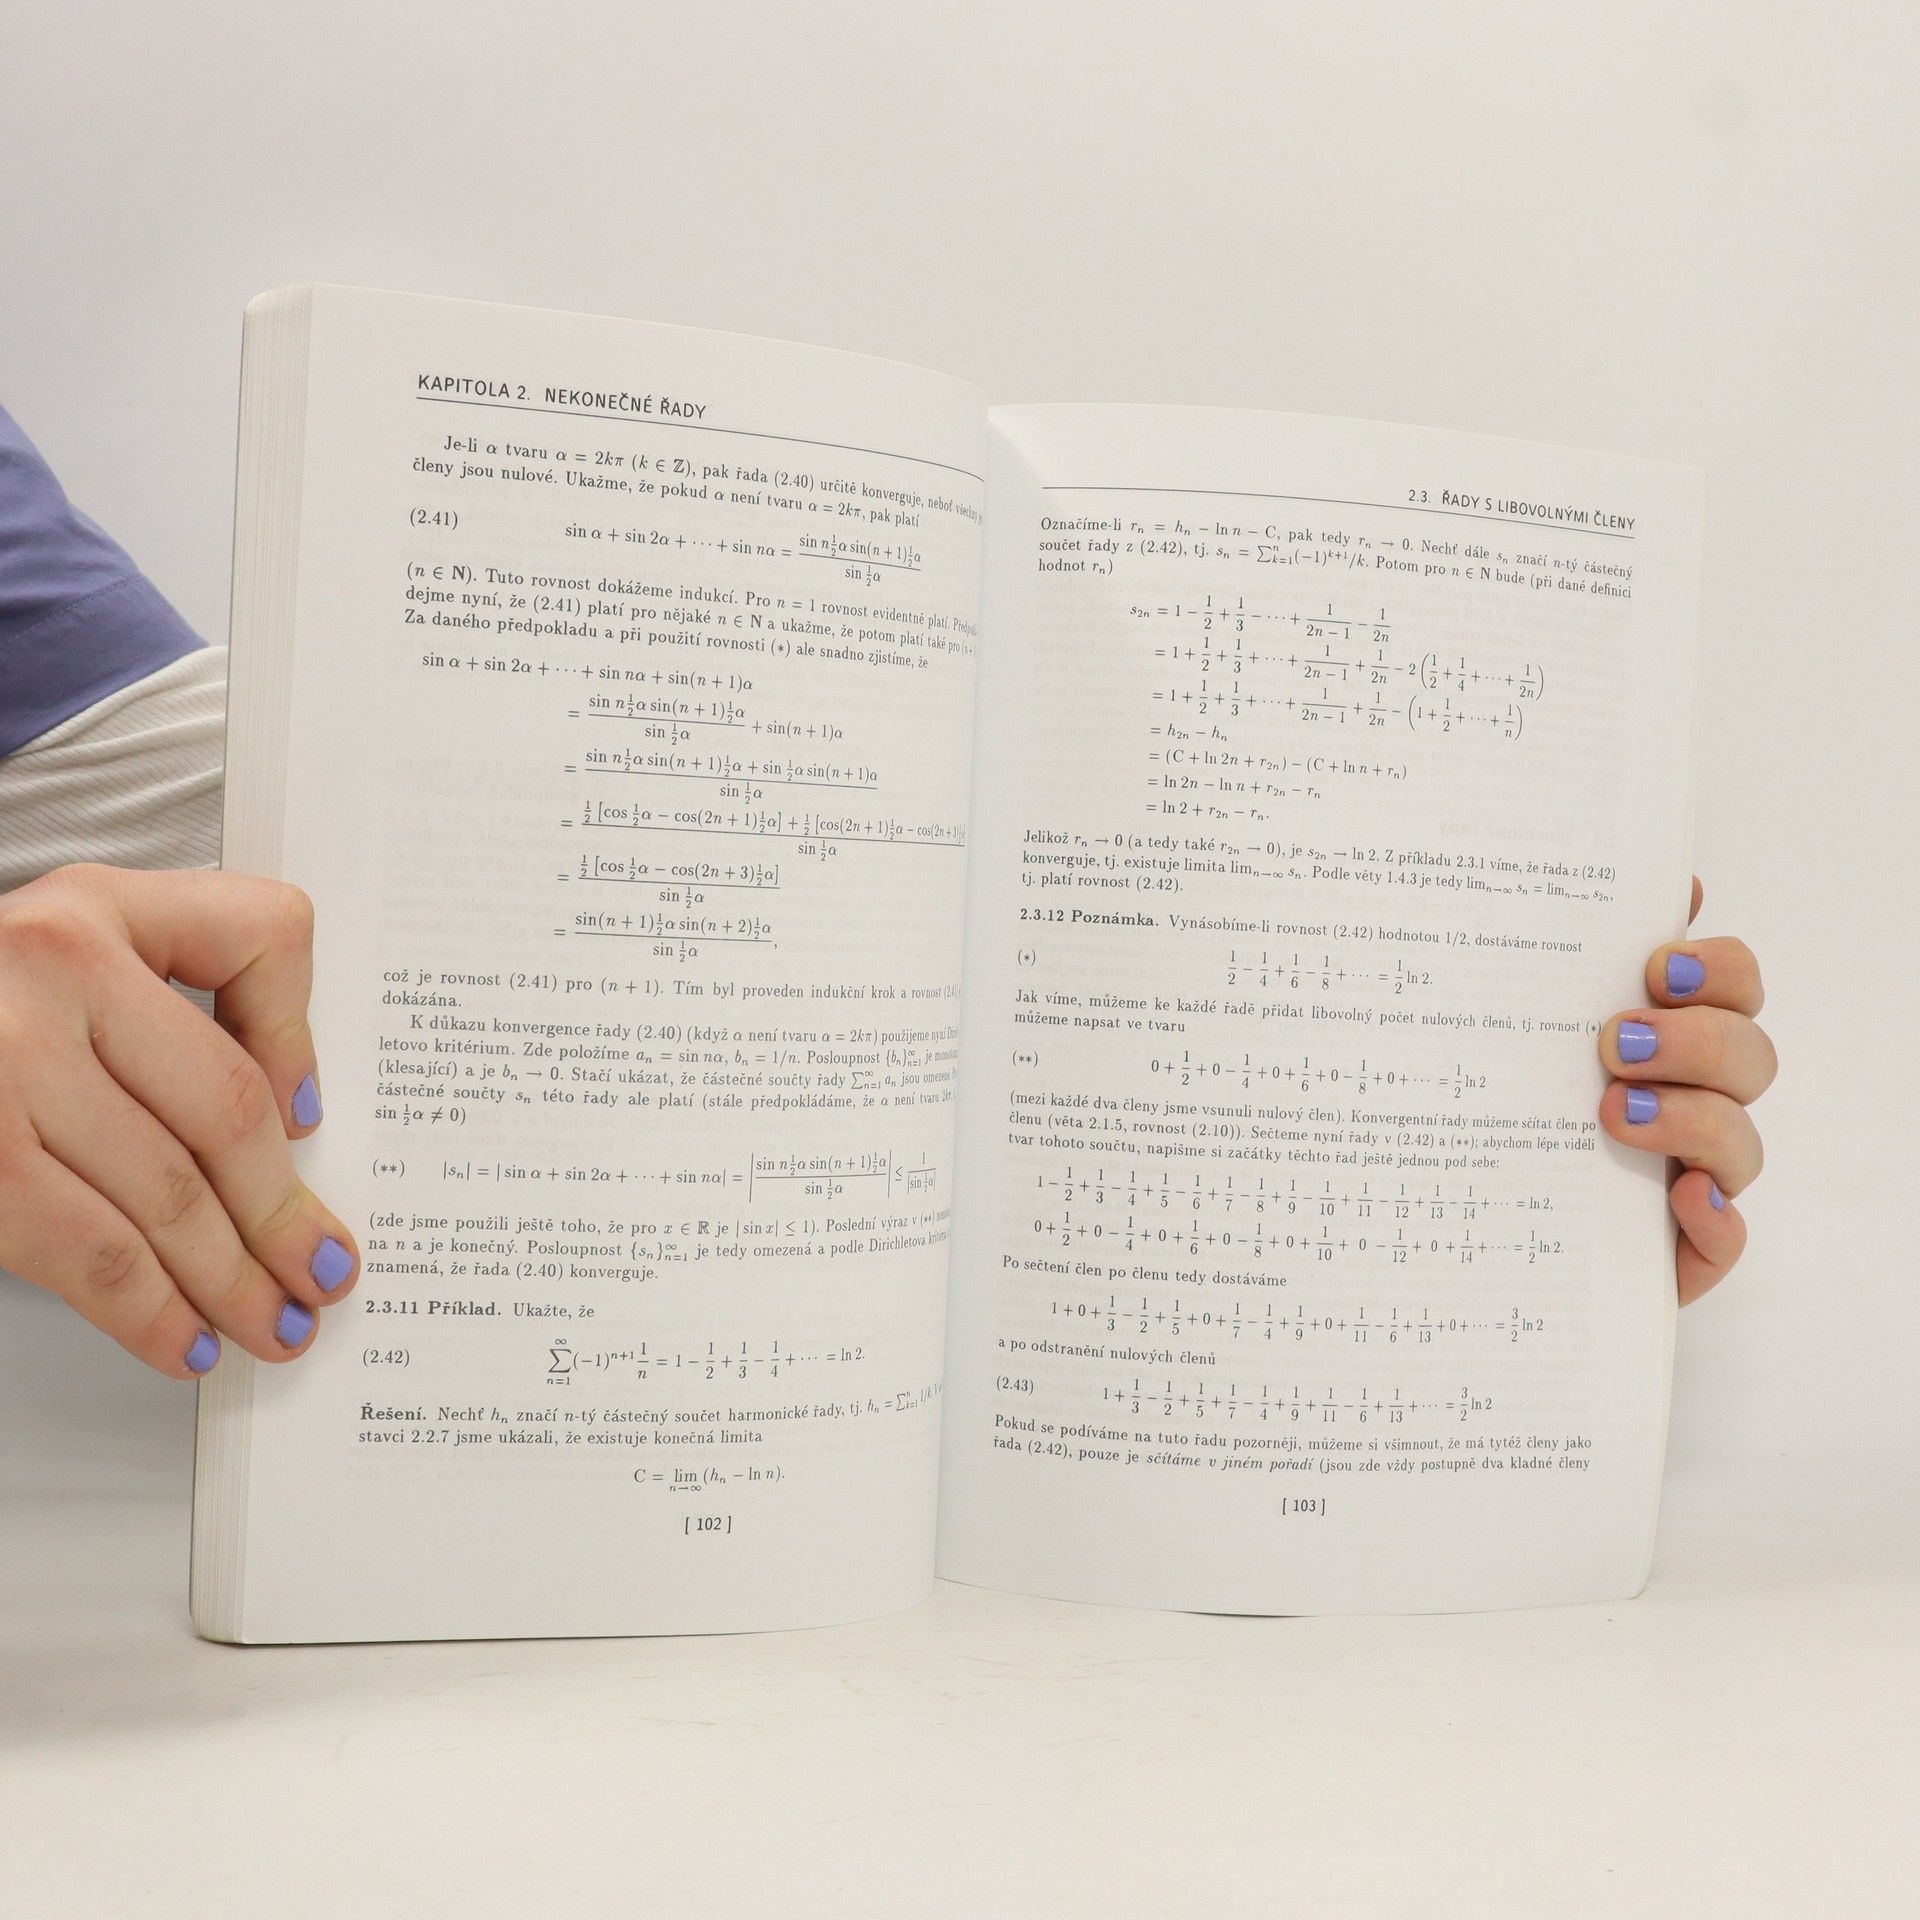 KAPITOLA 2. NEKONEČNÉ ŘADY
Je-li α tvaru α = 2kπ (k ∈ ℤ), pak řada (2.40) určitě konverguje, neboť
členy jsou nulové. Ukažme, že pokud α není tvaru α = 2kπ, pak platí
(2.41) sin α + sin 2α + ··· + sin nα = \frac{sin n½α sin(n + 1)½α}{sin ½α}
(n ∈ ℕ). Tuto rovnost dokážeme indukcí. Pro n = 1 rovnost evidentně platí.
dejme nyní, že (2.41) platí pro nějaké n ∈ ℕ a ukažme, že potom platí také pro
Za daného předpokladu a při použití rovnosti (∗) ale snadno zjistíme, že
sin α + sin 2α + ··· + sin nα + sin(n + 1)α
= \frac{sin n½α sin(n + 1)½α}{sin ½α} + sin(n + 1)α
= \frac{sin n½α sin(n + 1)½α + sin ½α sin(n + 1)α}{sin ½α}
= \frac{½ [cos ½α − cos(2n + 1)½α] + ½ [cos(2n + 1)½α − cos(2n + 3)½α]}{sin ½α}
= \frac{½ [cos ½α − cos(2n + 3)½α]}{sin ½α}
= \frac{sin(n + 1)½α sin(n + 2)½α}{sin ½α},
což je rovnost (2.41) pro (n + 1). Tím byl proveden indukční krok a rovnost
dokázána.
K důkazu konvergence řady (2.40) (když α není tvaru α = 2kπ) použijeme nyní
letovo kritérium. Zde položíme aₙ = sin nα, bₙ = 1/n. Posloupnost {bₙ}_{n=1}^∞ je
(klesající) a je bₙ → 0. Stačí ukázat, že částečné součty řady ∑_{n=1}^∞ aₙ jsou omezené.
částečné součty sₙ této řady ale platí (stále předpokládáme, že α není tvaru
sin ½α ≠ 0)
(∗∗) |sₙ| = | sin α + sin 2α + ··· + sin nα| = |\frac{sin n½α sin(n + 1)½α}{sin ½α}| ≤ \frac{1}{|sin ½α|}
(zde jsme použili ještě toho, že pro x ∈ ℝ je | sin x| ≤ 1). Poslední výraz v (∗∗)
na n a je konečný. Posloupnost {sₙ}_{n=1}^∞ je tedy omezená a podle Dirichletova
znamená, že řada (2.40) konverguje.
2.3.11 Příklad. Ukažte, že
(2.42) ∑_{n=1}^∞ (−1)^{n+1} \frac{1}{n} = 1 − \frac{1}{2} + \frac{1}{3} − \frac{1}{4} + ··· = ln 2.
Řešení. Nechť hₙ značí n-tý částečný součet harmonické řady, tj. hₙ = ∑_{k=1}^n 1/k.
stavci 2.2.7 jsme ukázali, že existuje konečná limita
C = lim_{n→∞} (hₙ − ln n).
[ 102 ]
2.3. ŘADY S LIBOVOLNÝMI ČLENY
Označíme-li rₙ = hₙ − ln n − C, pak tedy rₙ → 0. Nechť dále sₙ značí n-tý částečný
součet řady z (2.42), tj. sₙ = ∑_{k=1}^n (−1)^{k+1}/k. Potom pro n ∈ ℕ bude (při dané definici
hodnot rₙ)
s₂ₙ = 1 − \frac{1}{2} + \frac{1}{3} − ··· + \frac{1}{2n − 1} − \frac{1}{2n}
= 1 + \frac{1}{2} + \frac{1}{3} + ··· + \frac{1}{2n − 1} + \frac{1}{2n} − 2 (\frac{1}{2} + \frac{1}{4} + ··· + \frac{1}{2n})
= 1 + \frac{1}{2} + \frac{1}{3} + ··· + \frac{1}{2n − 1} + \frac{1}{2n} − (1 + \frac{1}{2} + ··· + \frac{1}{n})
= h₂ₙ − hₙ
= (C + ln 2n + r₂ₙ) − (C + ln n + rₙ)
= ln 2n − ln n + r₂ₙ − rₙ
= ln 2 + r₂ₙ − rₙ.
Jelikož rₙ → 0 (a tedy také r₂ₙ → 0), je s₂ₙ → ln 2. Z příkladu 2.3.1 víme, že řada z (2.42)
konverguje, tj. existuje limita lim_{n→∞} sₙ. Podle věty 1.4.3 je tedy lim_{n→∞} sₙ = lim_{n→∞} s₂ₙ,
tj. platí rovnost (2.42).
2.3.12 Poznámka. Vynásobíme-li rovnost (2.42) hodnotou 1/2, dostáváme rovnost
(∗) \frac{1}{2} − \frac{1}{4} + \frac{1}{6} − \frac{1}{8} + ··· = \frac{1}{2} ln 2.
Jak víme, můžeme ke každé řadě přidat libovolný počet nulových členů, tj. rovnost (∗)
můžeme napsat ve tvaru
(∗∗) 0 + \frac{1}{2} + 0 − \frac{1}{4} + 0 + \frac{1}{6} + 0 − \frac{1}{8} + 0 + ··· = \frac{1}{2} ln 2
(mezi každé dva členy jsme vsunuli nulový člen). Konvergentní řady můžeme sčítat člen po
členu (věta 2.1.5, rovnost (2.10)). Sečteme nyní řady v (2.42) a (∗∗); abychom lépe viděli
tvar tohoto součtu, napišme si začátky těchto řad ještě jednou pod sebe:
1 − \frac{1}{2} + \frac{1}{3} − \frac{1}{4} + \frac{1}{5} − \frac{1}{6} + \frac{1}{7} − \frac{1}{8} + \frac{1}{9} − \frac{1}{10} + \frac{1}{11} − \frac{1}{12} + \frac{1}{13} − \frac{1}{14} + ··· = ln 2,
0 + \frac{1}{2} + 0 − \frac{1}{4} + 0 + \frac{1}{6} + 0 − \frac{1}{8} + 0 + \frac{1}{10} + 0 − \frac{1}{12} + 0 + \frac{1}{14} + ··· = \frac{1}{2} ln 2.
Po sečtení člen po členu tedy dostáváme
1 + 0 + \frac{1}{3} − \frac{1}{2} + \frac{1}{5} + 0 + \frac{1}{7} − \frac{1}{4} + \frac{1}{9} + 0 + \frac{1}{11} − \frac{1}{6} + \frac{1}{13} + 0 + ··· = \frac{3}{2} ln 2
a po odstranění nulových členů
(2.43) 1 + \frac{1}{3} − \frac{1}{2} + \frac{1}{5} + \frac{1}{7} − \frac{1}{4} + \frac{1}{9} + \frac{1}{11} − \frac{1}{6} + \frac{1}{13} + ··· = \frac{3}{2} ln 2
Pokud se podíváme na tuto řadu pozorněji, můžeme si všimnout, že má tytéž členy jako
řada (2.42), pouze je sčítáme v jiném pořadí (jsou zde vždy postupně dva kladné členy
[ 103 ]